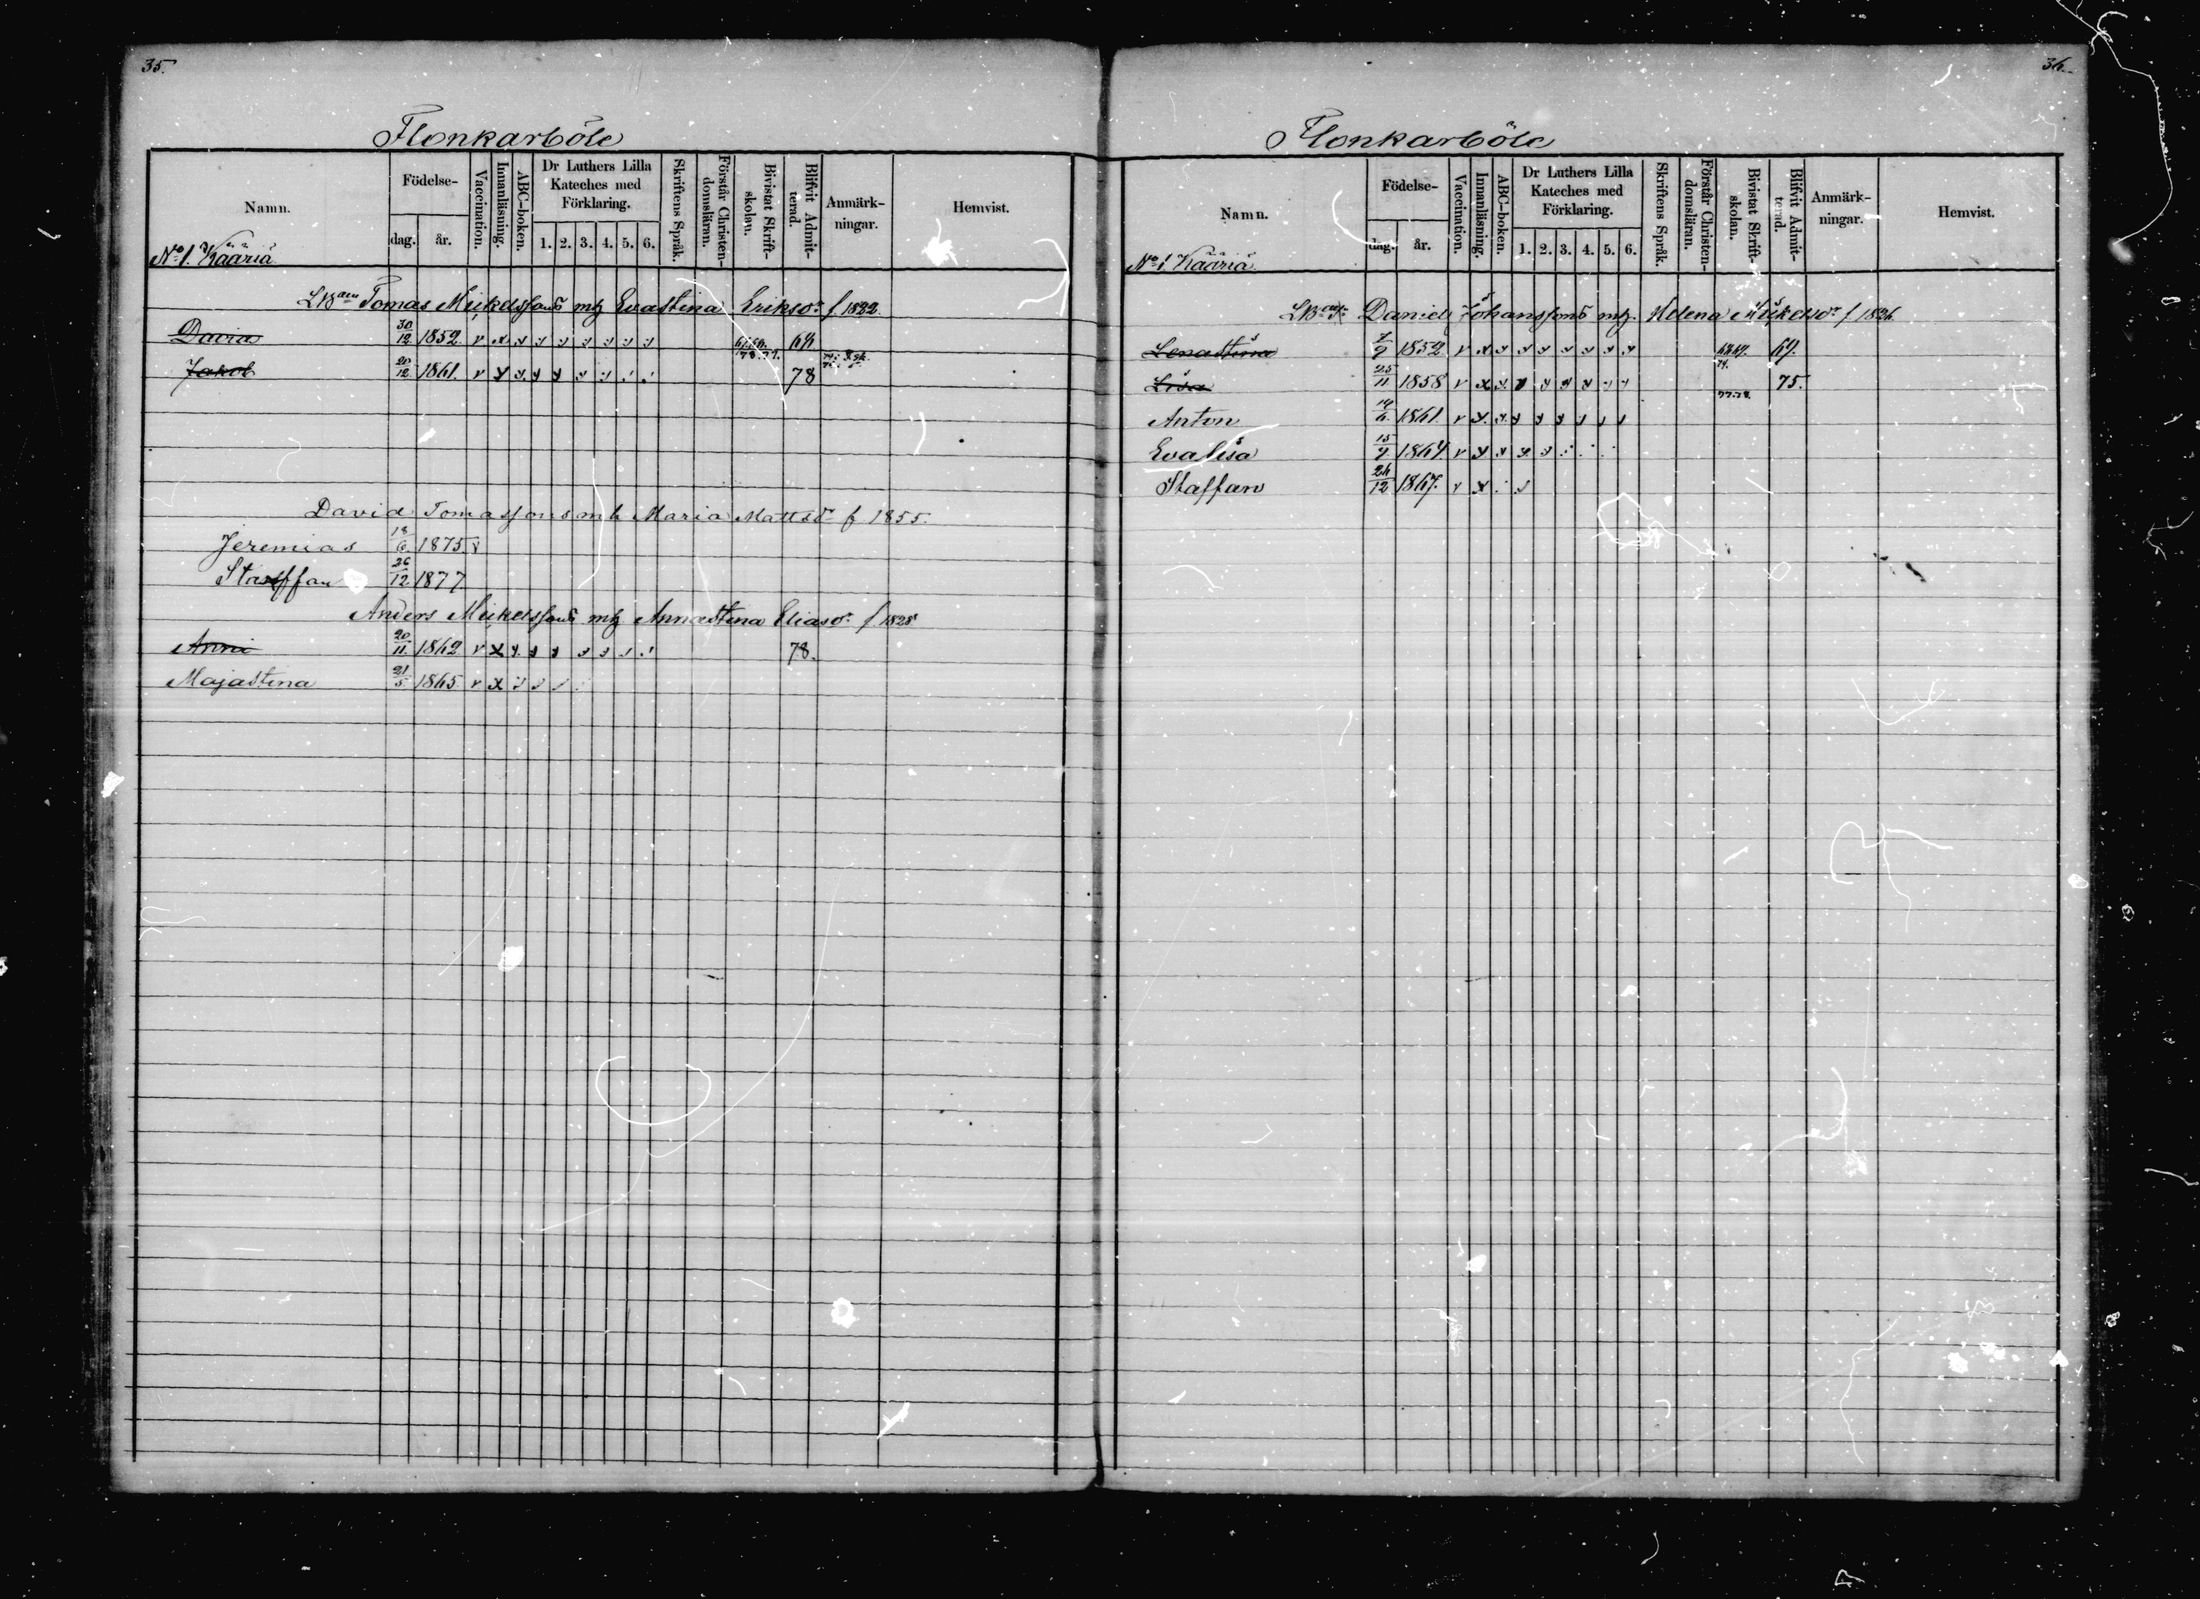 35.
Flonkarböle
Namn.
Födelse-
dag. år.
Vaccination.
Innanläsning.
ABC-boken.
Dr Luthers Lilla
Kateches med
Förklaring.
1. 2. 3. 4. 5. 6.
Skriftens Språk.
Förstår Christen-
domsläran.
Bivistat Skrift-
skolan.
Blifvit Admit-
terad.
Anmärk-
ningar.
Hemvist.
No 1. Kääriä
Tomas Mickelssons mh Evastina Eriksdr f. 1822
David 30/12 1852 v x y y y y y y y 68
Jakob 20/12 1861. v x y. y y y 78.77. 78
David Tomassons mh Maria Mattsdr f 1855.
Jeremias 18/6 1875 v
Staffan 26/12 1877
Anders Mickelssons mh Annastina Eliasdr f. 1828
Anna 20/11 1862 v x y. y y y y 78.
Majastina 21/5 1865 v x
36.
Flonkarböle
Namn.
Födelse-
dag. år.
Vaccination.
Innanläsning.
ABC-boken.
Dr Luthers Lilla
Kateches med
Förklaring.
1. 2. 3. 4. 5. 6.
Skriftens Språk.
Förstår Christen-
domsläran.
Bivistat Skrift-
skolan.
Blifvit Admit-
terad.
Anmärk-
ningar.
Hemvist.
No 1. Kääriä
Daniel Johanssons mh. Helena Mickelsdr f 1826
Lenastina 7/9 1852 v x y y y y y y y 69.
Lisa 25/11 1858 v x y. y y y y 74. 75.
Anton 1861. v x y. y y y y 77.78.
Evalisa 15/9 1864 v x y y y
Staffan 26/12 1867. v x